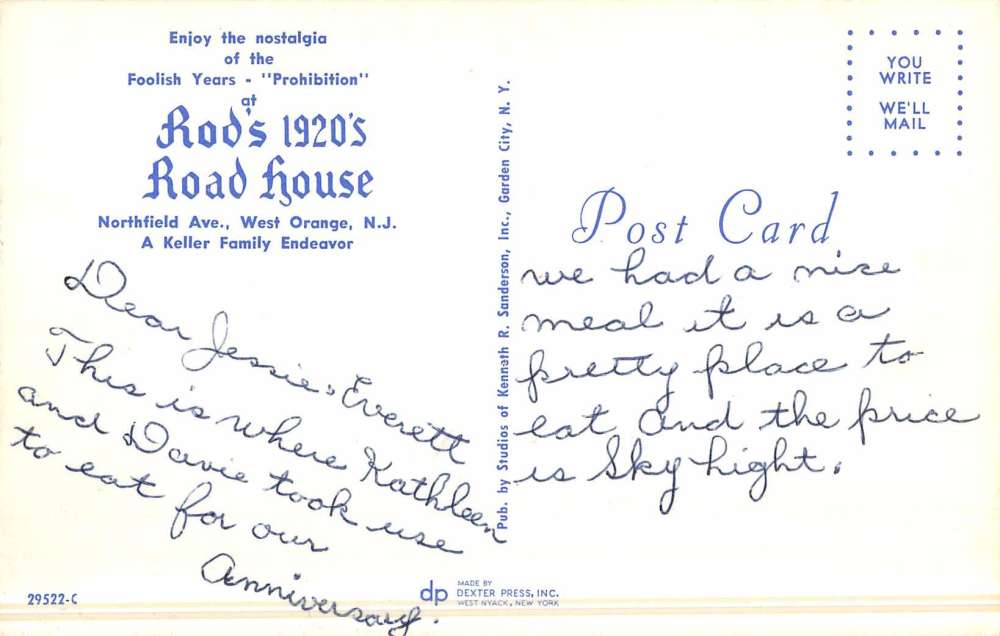 Enjoy the nostalgia
of the
Foolish Years - "Prohibition"
at
Rod's 1920's
Road House
Northfield Ave., West Orange, N.J.
A Keller Family Endeavor
Dear Jessie, Everett
This is where Kathleen
and Davie took use
to eat for our
Anniversary.
29522-C
Pub. by Studios of Kenneth R. Sanderson, Inc., Garden City, N. Y.
dp
MADE BY
DEXTER PRESS, INC.
WEST NYACK, NEW YORK
YOU
WRITE
WE'LL
MAIL
Post Card
we had a nice
meal it is a
pretty place to
eat and the price
is Sky hight.